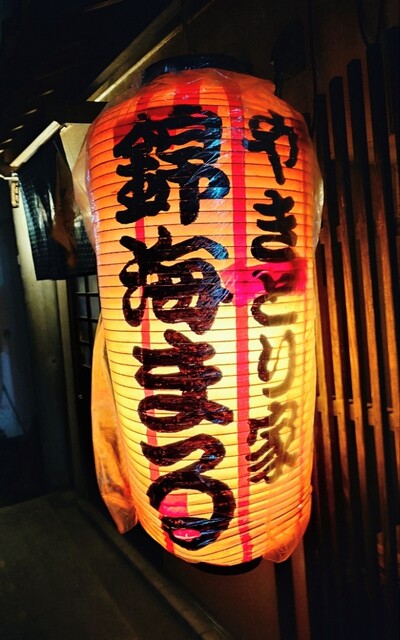 やきとり家
錦海まる